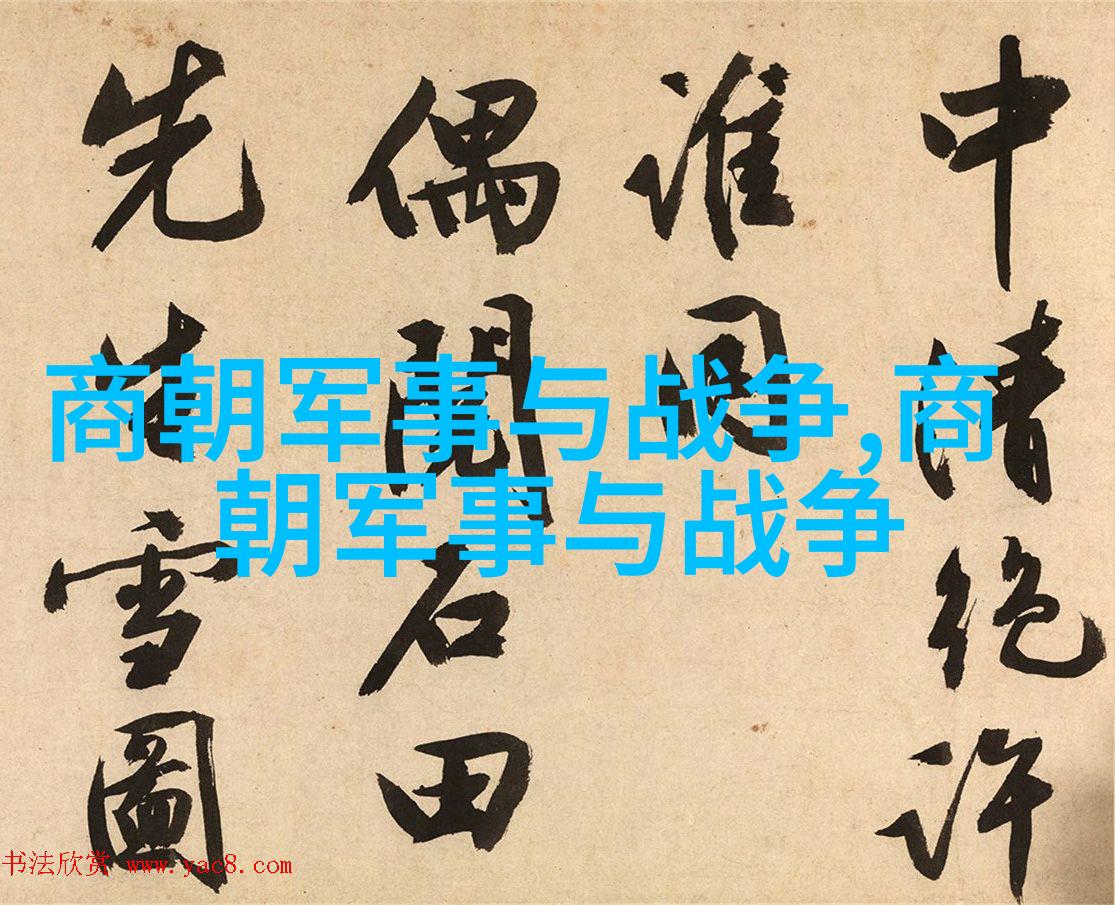 中清绝许
谁同
偶閱石田
先生雪圖
商朝军事与战争,商
朝军事与战争
书法欣赏 www.yac8.com